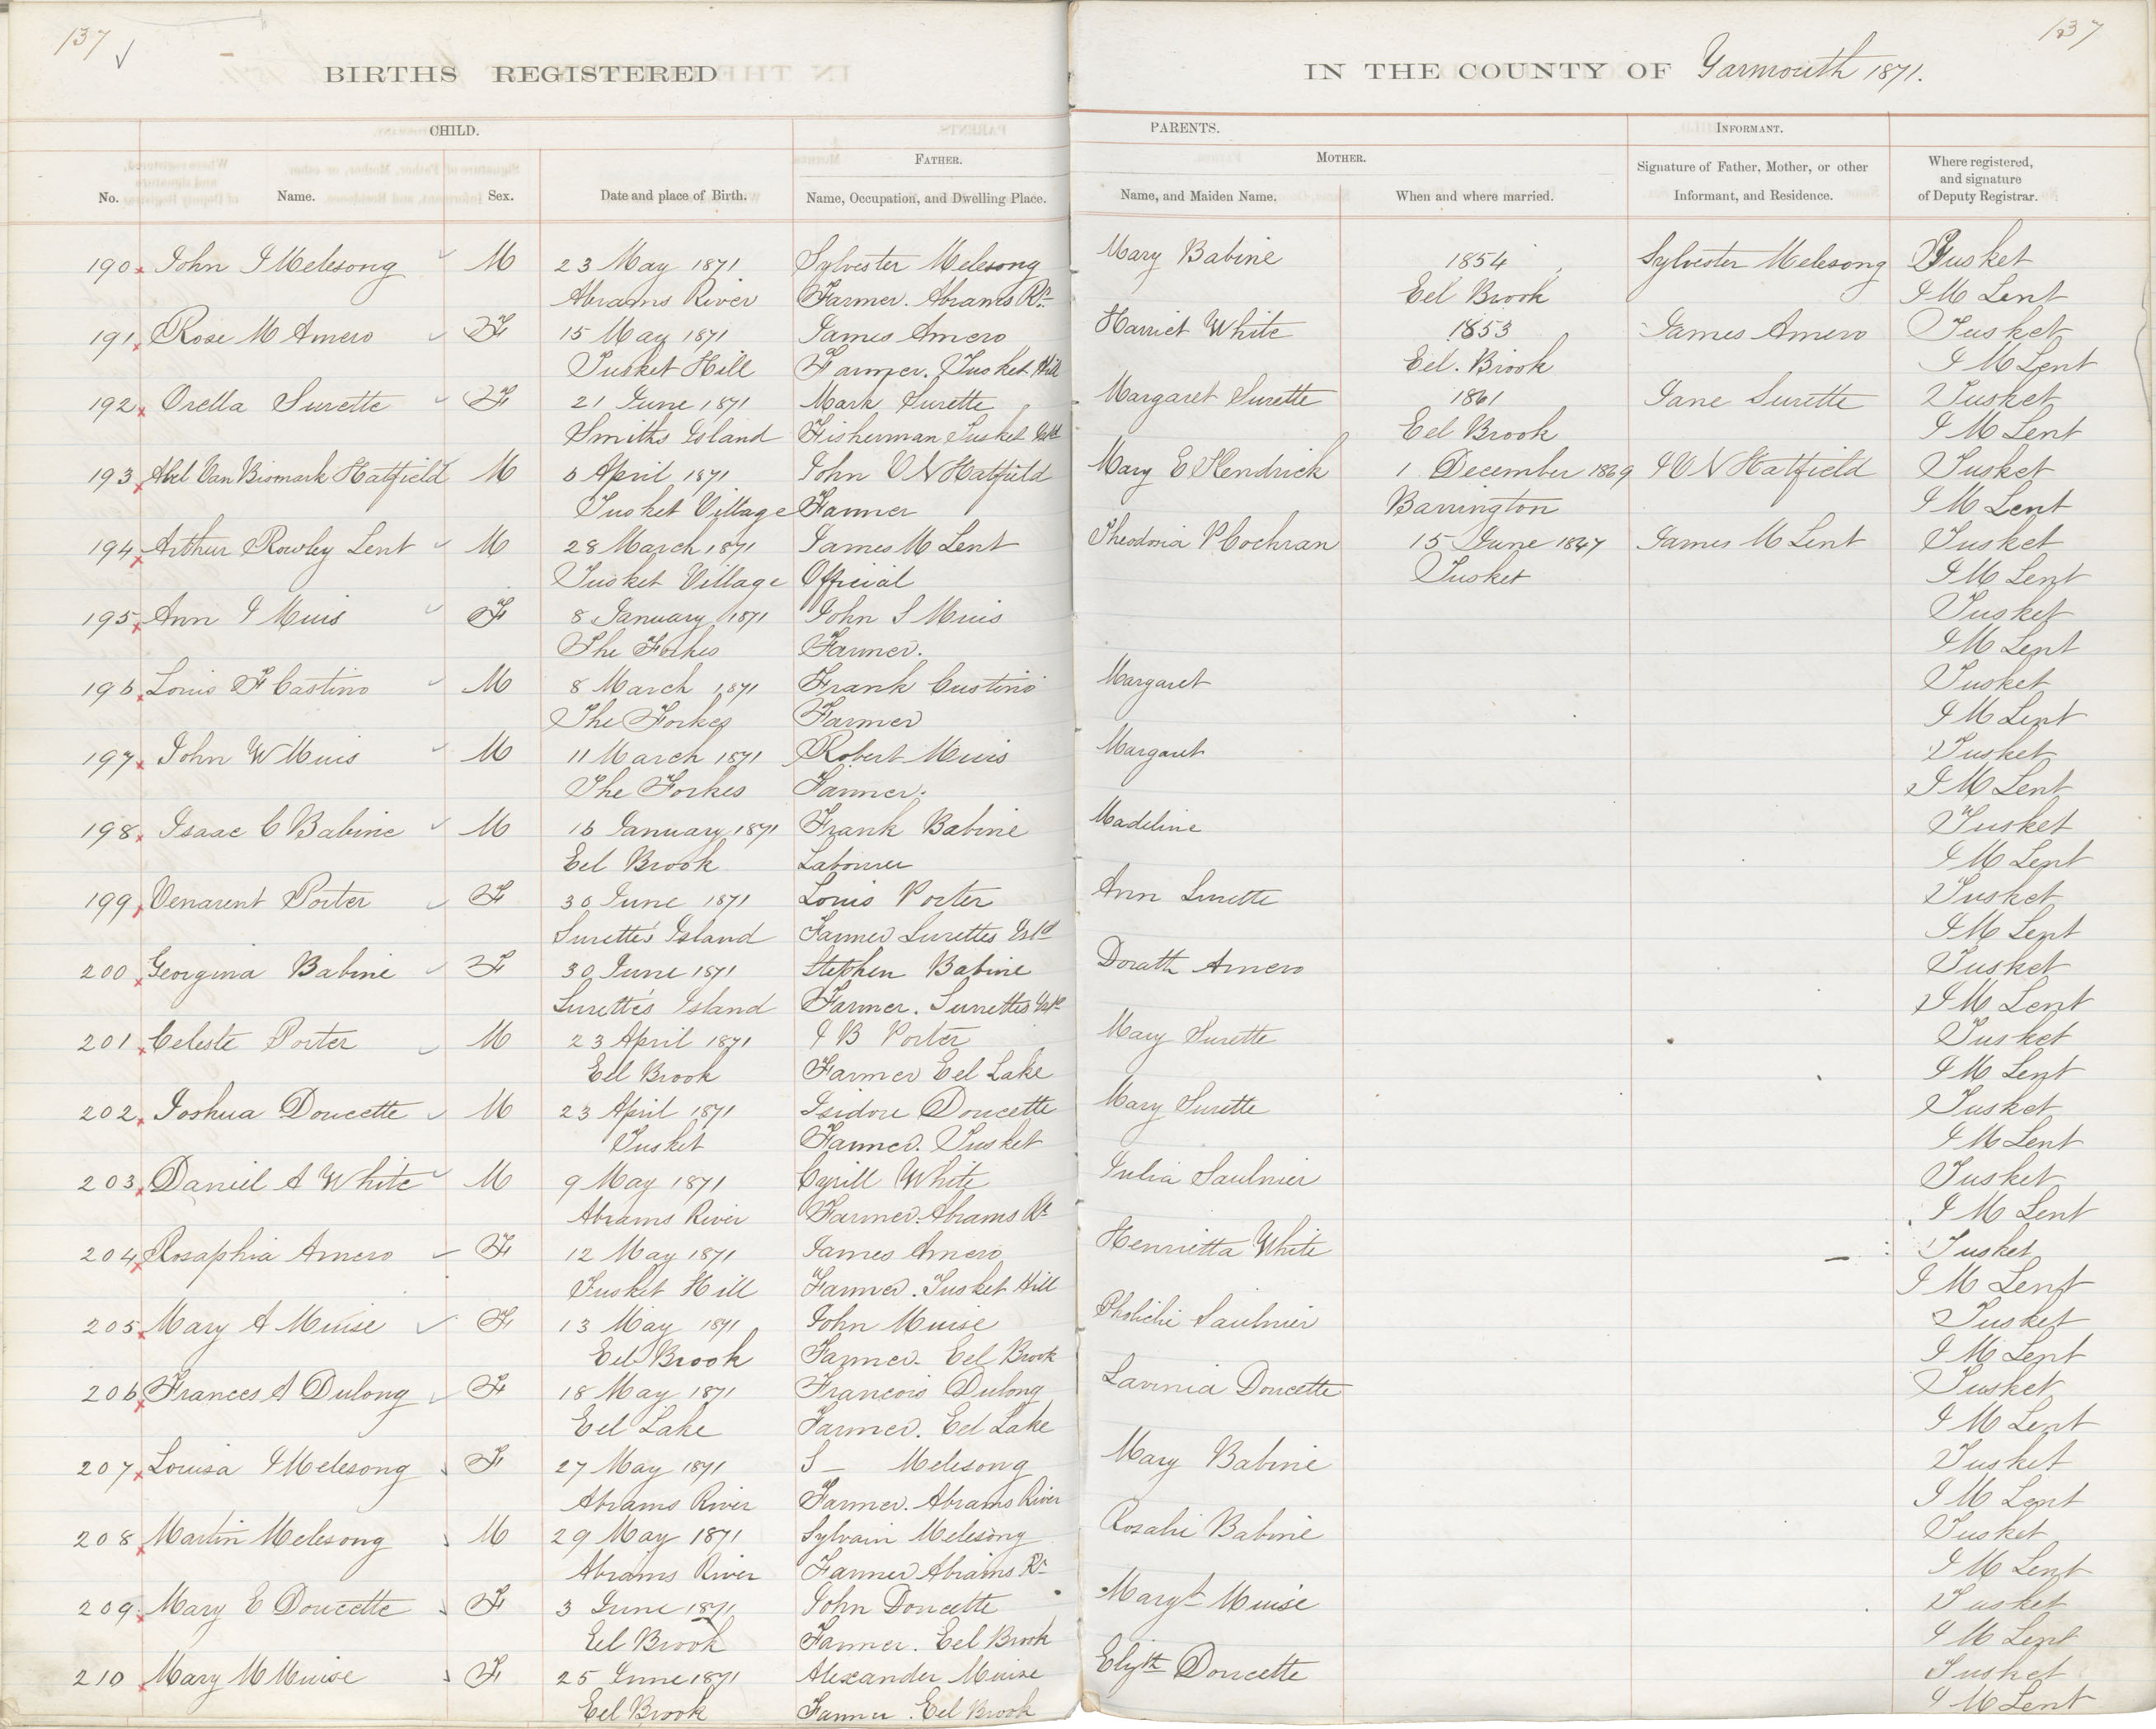 137 137
BIRTHS REGISTERED IN THE COUNTY OF Yarmouth 1871.
CHILD. PARENTS. INFORMANT.
FATHER. MOTHER.
No. Name. Sex. Date and place of Birth. Name, Occupation, and Dwelling Place. Name, and Maiden Name. When and where married. Signature of Father, Mother, or other Informant, and Residence. Where registered, and signature of Deputy Registrar.
190 John I Melesong M 23 May 1871 Sylvester Melesong Mary Babine 1854 Sylvester Melesong Tusket
Abrams River Farmer. Abrams Rr. Eel Brook J M Lent
191 Rose M Amero F 15 May 1871 James Amero Harriet White 1853 James Amero Tusket
Tusket Hill Farmer. Tusket Hill Eel. Brook J M Lent
192 Orella Surette F 21 June 1871 Mark Surette Margaret Surette 1861 Jane Surette Tusket
Smiths Island Fisherman Tusket Isld Eel Brook J M Lent
193 Abel Van Bismark Hatfield M 6 April 1871 John V N Hatfield Mary E Kendrick 1 December 1869 J V N Hatfield Tusket
Tusket Village Farmer Barrington J M Lent
194 Arthur Rowley Lent M 28 March 1871 James M Lent Theodosia P Cochran 15 June 1847 James M Lent Tusket
Tusket Village Official Tusket J M Lent
195 Ann J Muis F 8 January 1871 John S Muis Tusket
The Forkes Farmer. J M Lent
196 Louis F Castino M 8 March 1871 Frank Custino Margaret Tusket
The Forkes Farmer J M Lent
197 John W Muis M 11 March 1871 Robert Muis Margaret Tusket
The Forkes Farmer. J M Lent
198 Isaac C Babine M 16 January 1871 Frank Babine Madeline Tusket
Eel Brook Labourer J M Lent
199 Venarent Porter F 30 June 1871 Louis Porter Ann Surette Tusket
Surette's Island Farmer Surettes Isld J M Lent
200 Georgina Babine F 30 June 1871 Stephen Babine Dorath Amero Tusket
Surette's Island Farmer. Surrettes Isld J M Lent
201 Celeste Porter M 23 April 1871 J B Porter Mary Surette Tusket
Eel Brook Farmer Eel Lake J M Lent
202 Joshua Doucette M 23 April 1871 Isidore Doucette Mary Surette Tusket
Tusket Farmer. Tusket J M Lent
203 Daniel A White M 9 May 1871 Cyrill White Julia Saulnier Tusket
Abrams River Farmer. Abrams Rr J M Lent
204 Rosaphia Amero F 12 May 1871 James Amero Henrietta White Tusket
Tusket Hill Farmer. Tusket Hill J M Lent
205 Mary A Muise F 13 May 1871 John Muise Saulnier Tusket
Eel Brook Farmer. Eel Brook J M Lent
206 Frances A Dulong F 18 May 1871 Francois Dulong Lavinia Doucette Tusket
Eel Lake Farmer. Eel Lake J M Lent
207 Louisa J Melesong F 27 May 1871 S — Melesong Mary Babine Tusket
Abrams River Farmer. Abrams River J M Lent
208 Martin Melesong M 29 May 1871 Sylvain Melesong Rosalie Babine Tusket
Abrams River Farmer Abrams Rr J M Lent
209 Mary E Doucette F 3 June 1871 John Doucette Maryt Muise Tusket
Eel Brook Farmer. Eel Brook J M Lent
210 Mary M Muise F 25 June 1871 Alexander Muise Elizth Doucette Tusket
Eel Brook Farmer. Eel Brook J M Lent